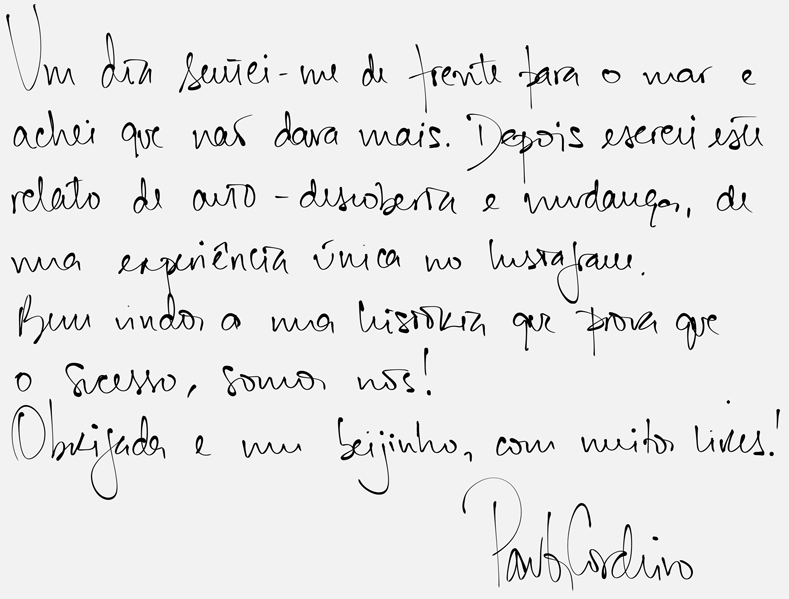 Um dia sentei-me de frente para o mar e
achei que não dava mais. Depois escrevi este
relato de auto-descoberta e mudança, de
uma experiência única no Instagram.
Bem vindos a uma história que prova que
o sucesso, somos nós!
Obrigada e um beijinho, com muitos likes!
Paula Cordeiro